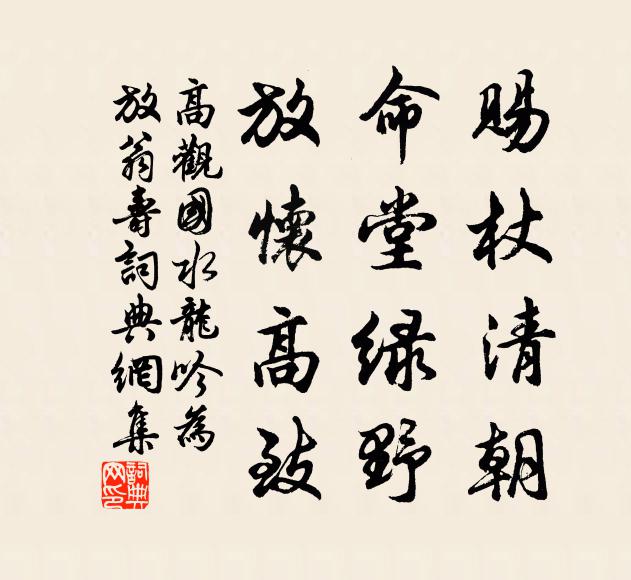 賜杖清朝
命堂綠野
放懷高致
高觀國水龍吟為
放翁壽詞典網集
詞典網印